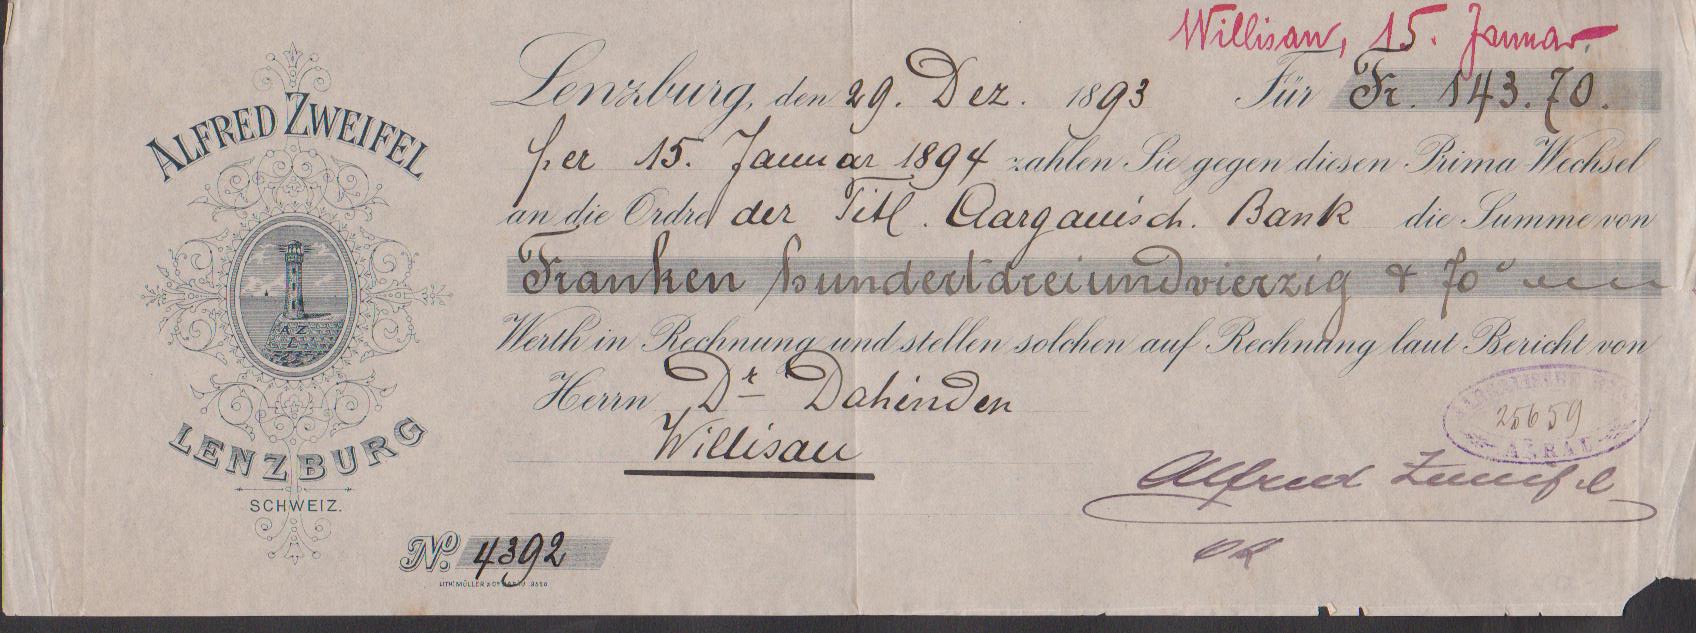 Willisau, 15. Januar.
ALFRED ZWEIFEL
Lenzburg, den 29. Dez. 1893 Für Fr. 143.70.
per 15. Januar 1894 zahlen Sie gegen diesen Prima Wechsel
an die Ordre der Titl. Aargauisch. Bank die Summe von
Franken hundertdreiundvierzig & 70
A Z
L
Werth in Rechnung und stellen solchen auf Rechnung laut Bericht von
Herrn Dr Dahinden
Willisau
25659
AARAU
LENZBURG
SCHWEIZ.
Alfred Zweifel
No. 4392
LITH. MÜLLER &